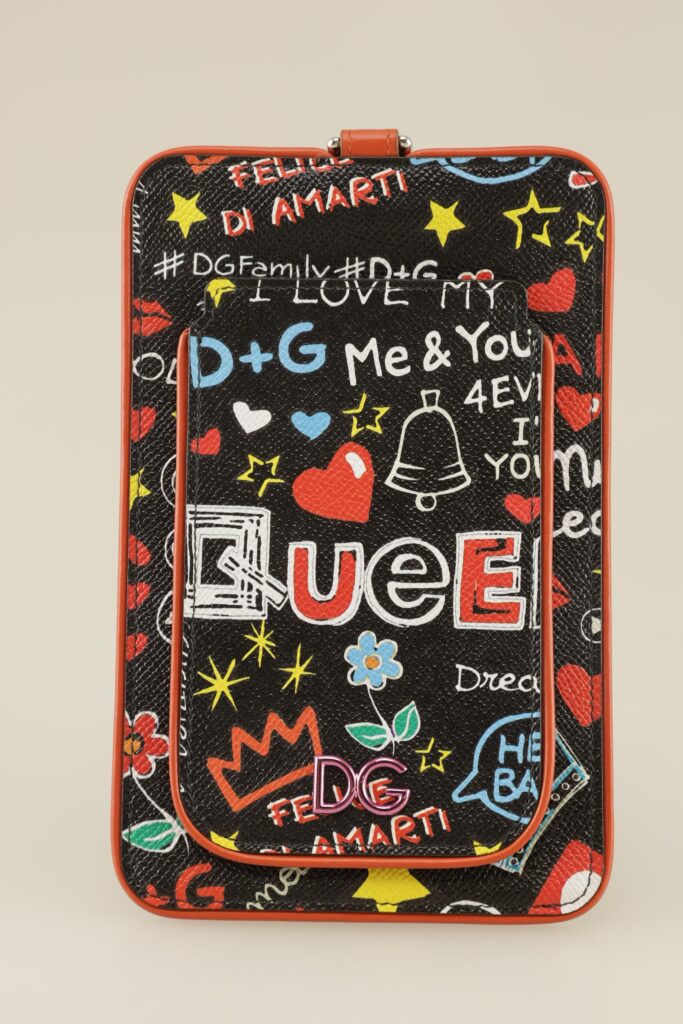 FELICE
DI AMARTI
#DGFamily #D+G
I LOVE MY
D+G Me & You
4EV
I'
YOU
Mu
QUEE
Drea
HE
BA
DG
FELICE
DI AMARTI
D+G